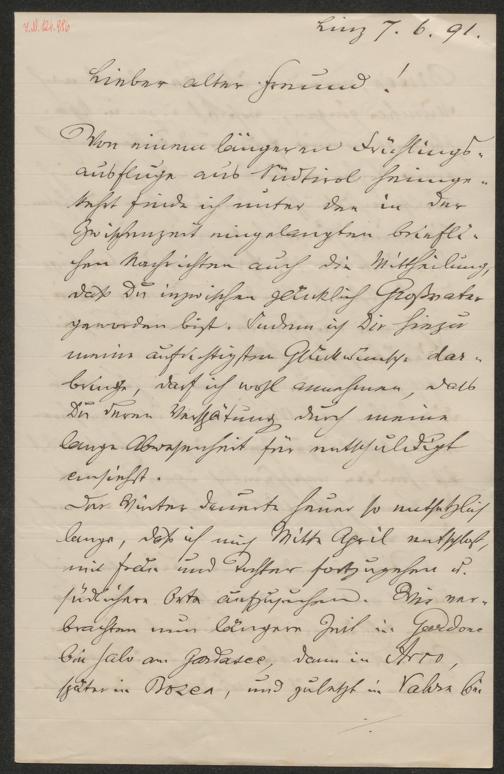 I.N. 121.980
Linz 7. 6. 91.
Lieber alter Freund!
Von einem längeren Frühlings-
ausfluge aus Südtirol heimge-
kehrt finde ich unter den in der
Zwischenzeit eingelangten briefli-
chen Nachrichten auch die Mittheilung,
daß Du inzwischen glücklich Großvater
geworden bist. Indem ich Dir hiezu
meine aufrichtigsten Glückwünsche dar-
bringe, darf ich wohl annehmen, daß
Du deren Verspätung durch meine
lange Abwesenheit für entschuldigt
ansiehst.
Der Winter dauerte heuer so entsetzlich
lange, daß ich mich Mitte April entschloß,
mit Frau und Tochter fortzugehen u.
südlichere Orte aufzusuchen. Wir ver-
brachten nun längere Zeit in Gardone
bei Salo am Gardasee, dann in Arco,
später in Bozen, und zuletzt in Vahrn bei